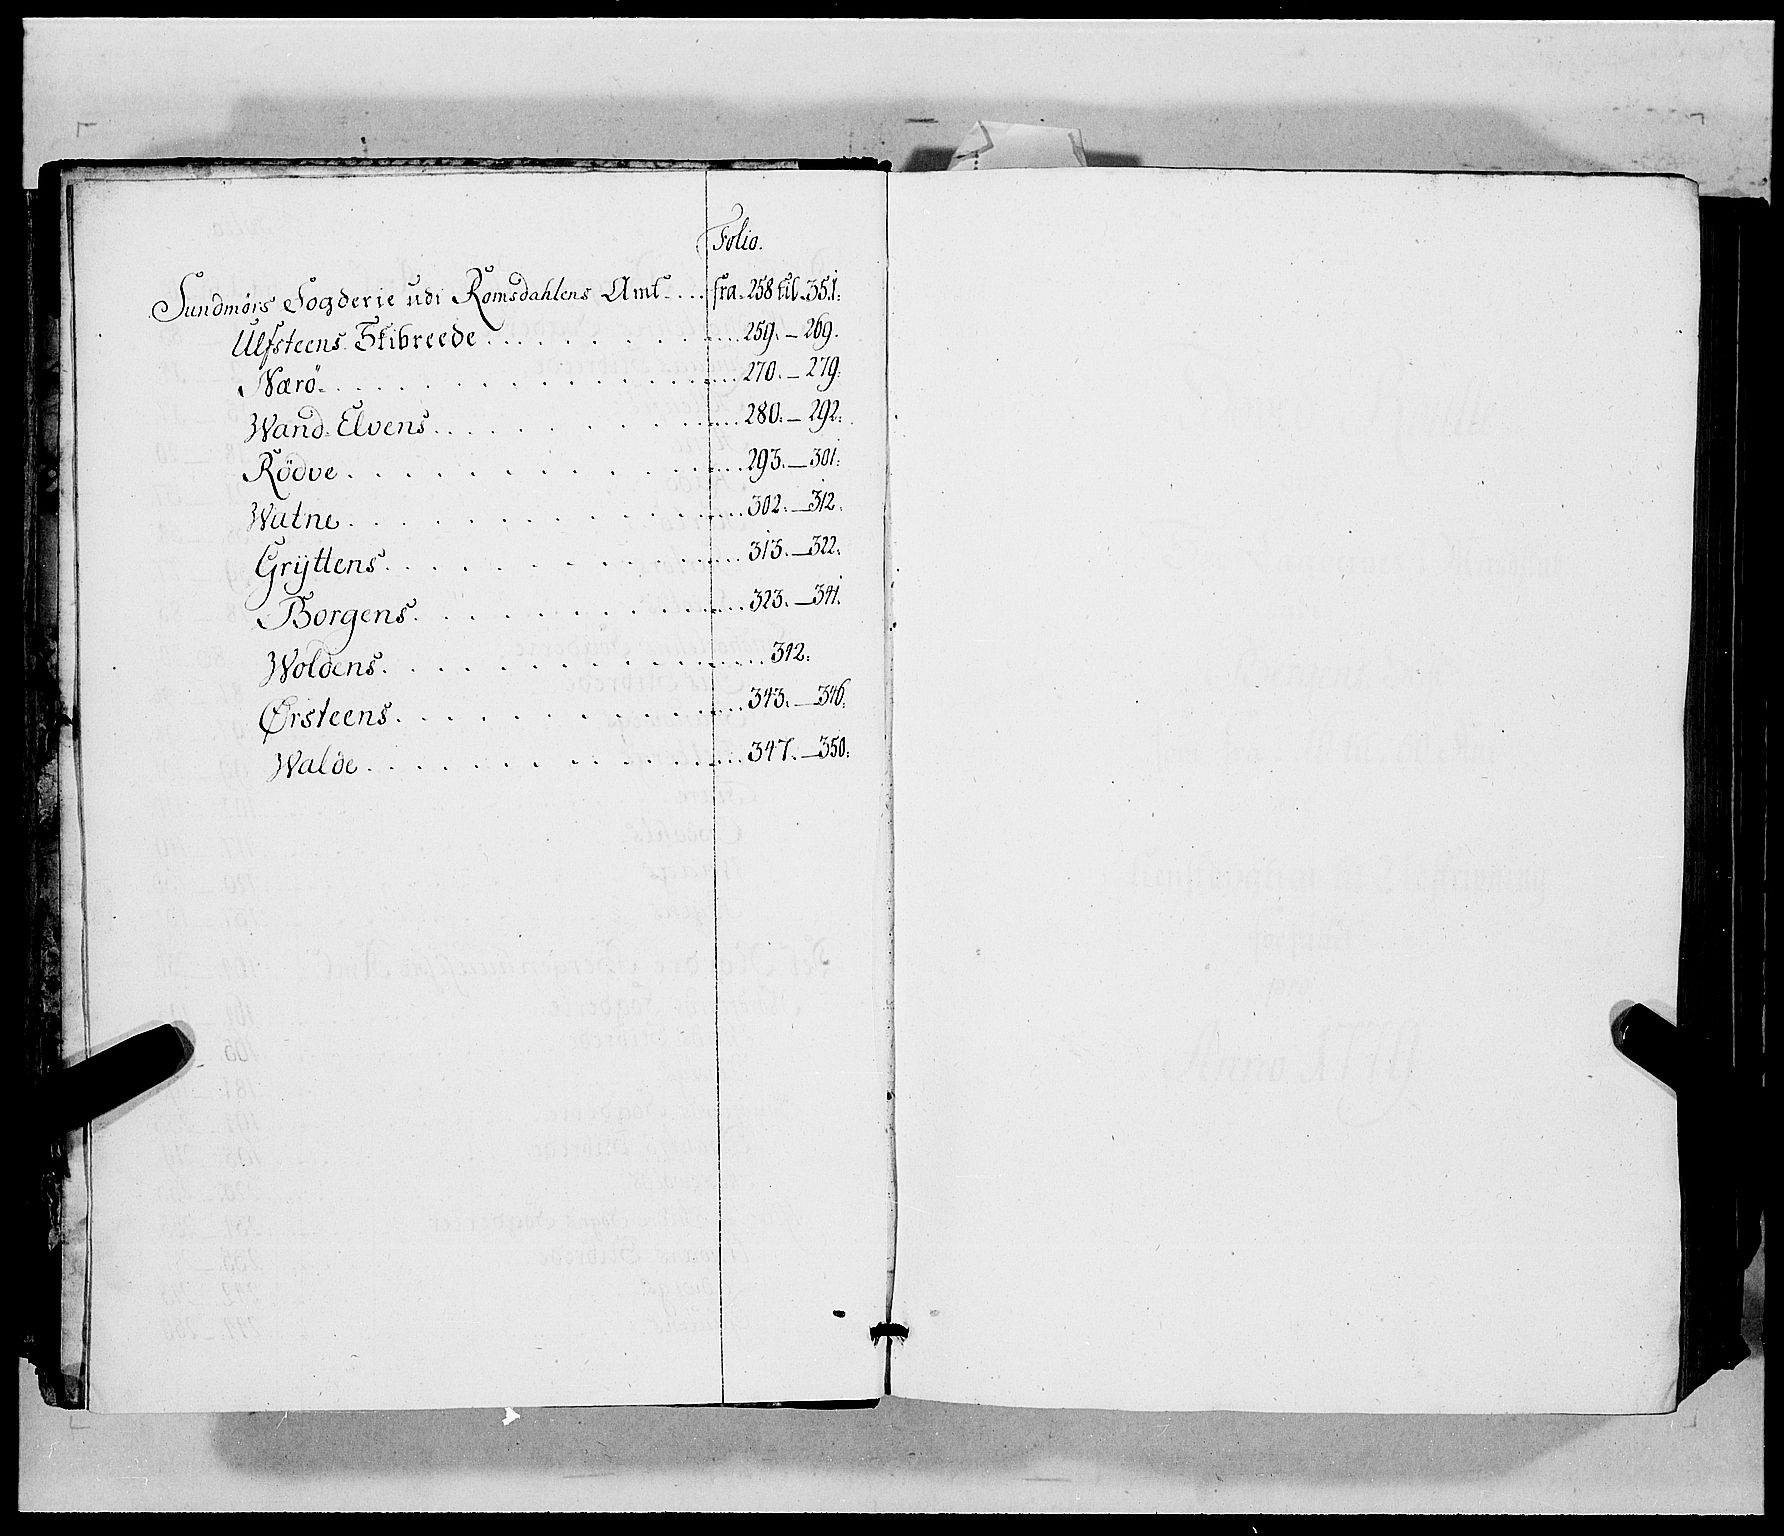 Folio.
Sundmørs Fogderie udi Romsdahlens Amt.... fra. 258 til. 351:
Ulfsteens Skibreede. . . . . . . . 259. — 269.
Nærö. . . . . . . . . . 270. — 279.
Wand-Elvens. . . . . . . . . 280. — 292.
Rödve. . . . . . . . . . 293. — 301.
Watne. . . . . . . . . . 302. — 312.
Grÿttens. . . . . . . . . . 313. — 322.
Borgens. . . . . . . . . . 323. — 341.
Woldens. . . . . . . . . . 342:
Ørsteens. . . . . . . . . . 343. — 346.
Walde. . . . . . . . . . 347. — 350: